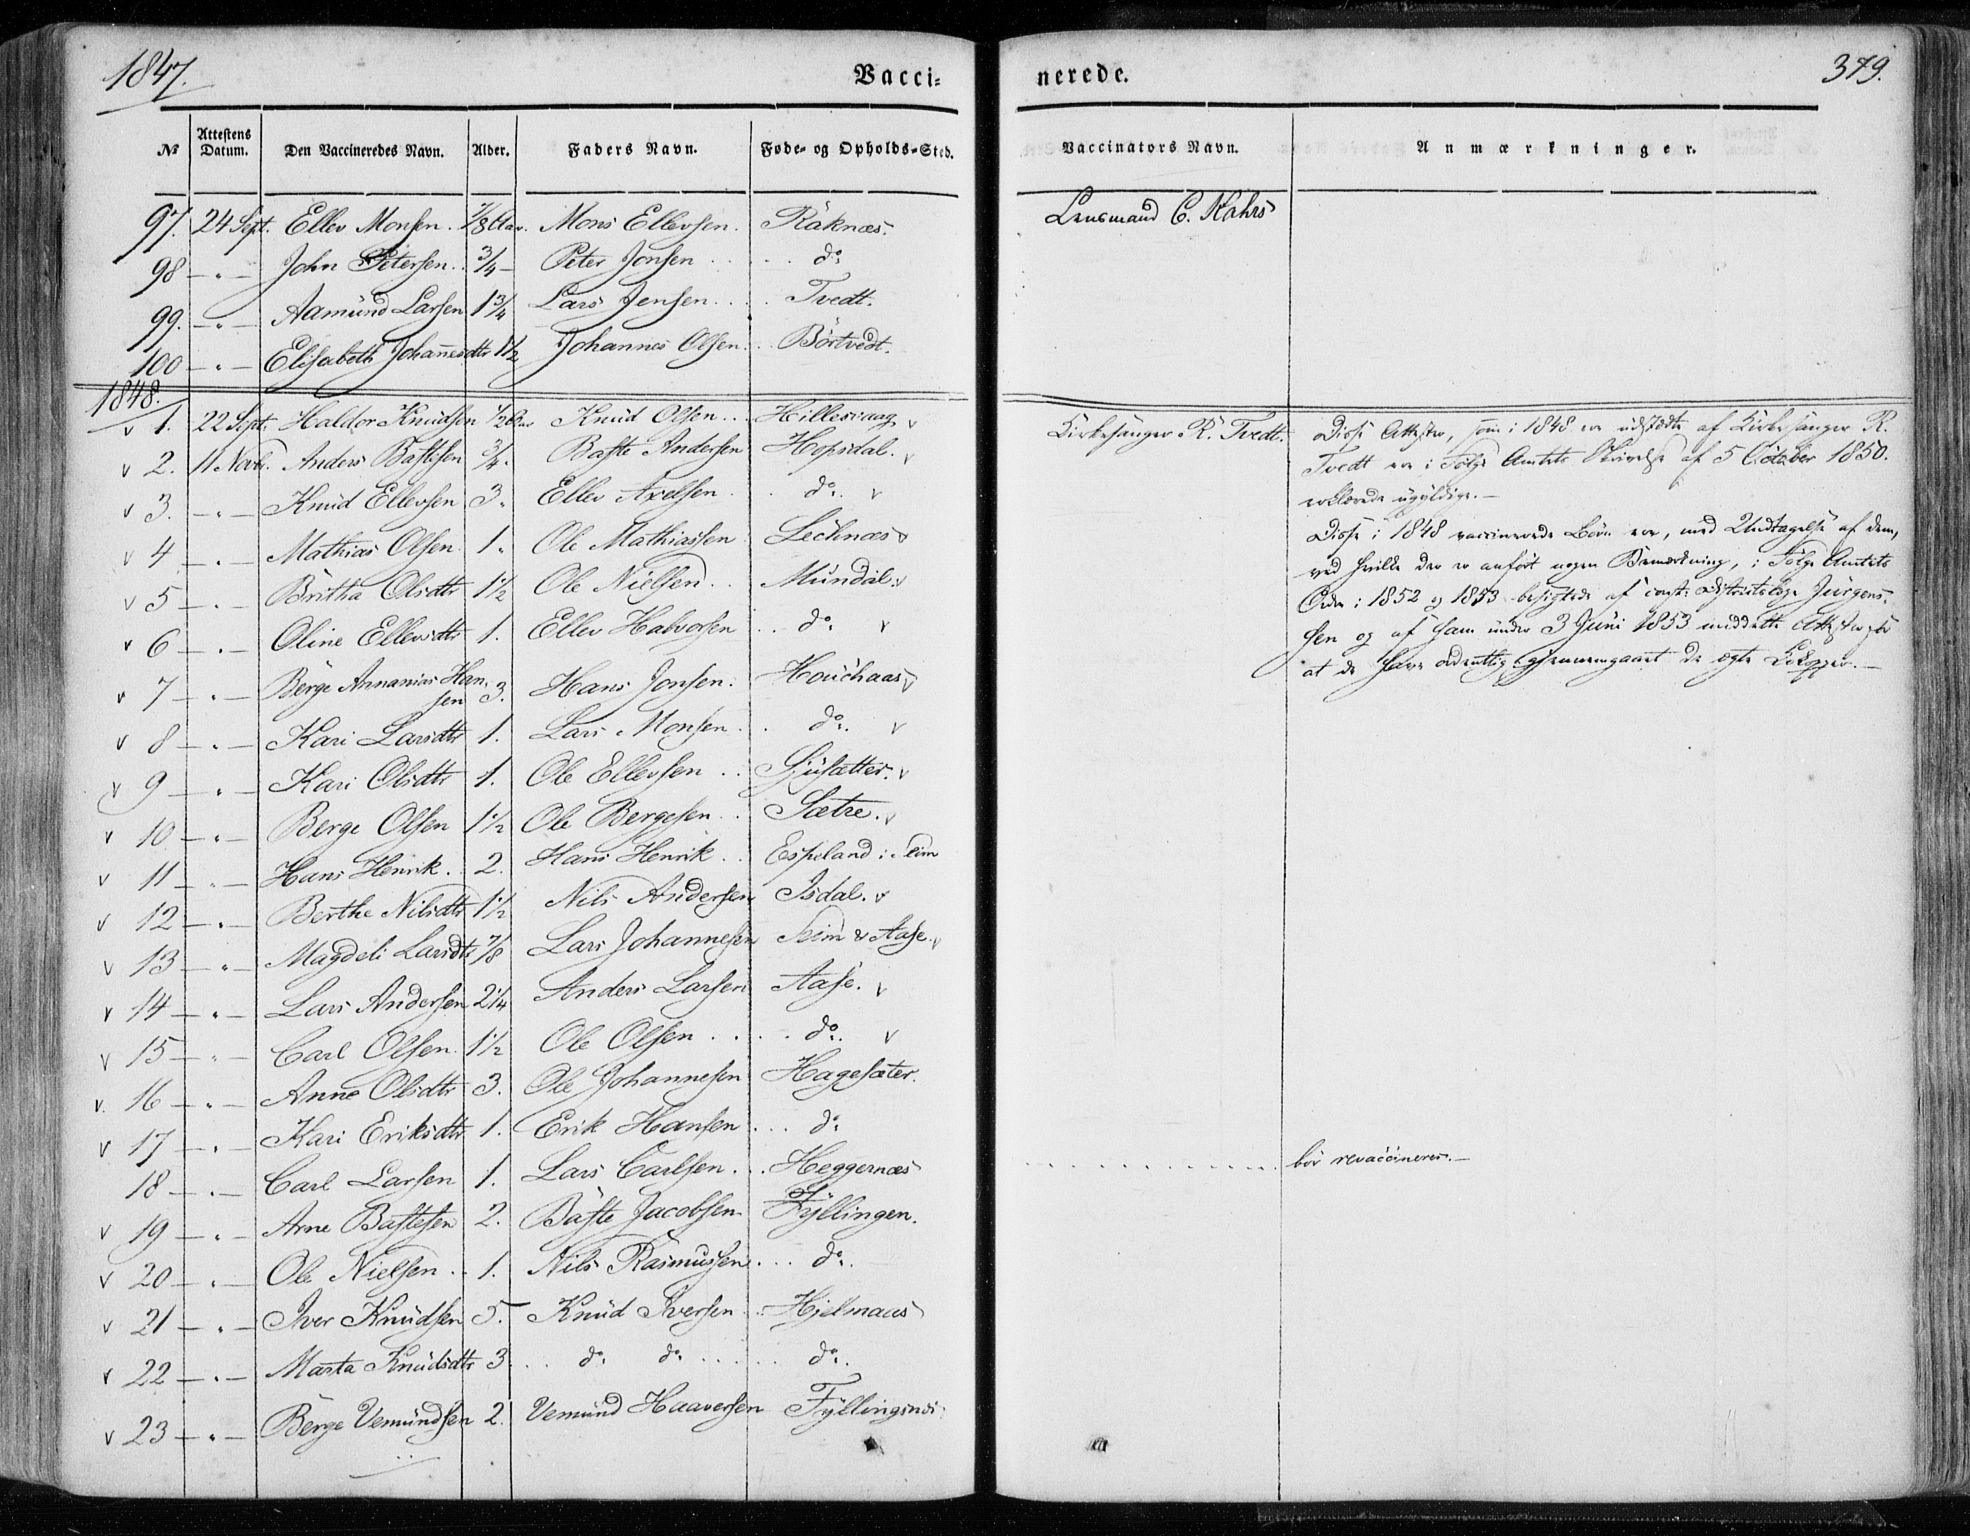 1847. Vacci- nerede. 379.
№ Attestens Datum. Den Vaccineredes Navn. Alder. Faders Navn. Føde- og Opholds-Sted. Vaccinators Navn. Anmærkninger.
97. 24 Sept. Ellev Monsen. 7/8 Aar. Mons Ellevsen. Räknæs. Lensmand C. Kahrs
98 - " - John Petersen. 3/4 - Peter Jonsen do
99. - " - Aamund Larsen 1 3/4 Lars Jensen Tvedt.
100 - " - Elisabeth Johannesdtr 1 1/2 Johannes Olsen. Börtvedt.
1848.
v 1. 22 Sept. Haldor Knudsen 1/2 Aar Knud Olsen Hillesvaag v Kirkesanger R. Tvedt. Disse Attester, som i 1848 ere udstædte af Kirkesanger R.
v 2. 11 Novbr. Anders Bastesen 3/4. Baste Andersen Hopsdal. v Tvedt ere i Følge Amtets Skrivelse af 5 October 1850.
erklærede ugyldige. -
v 3. - " - Knud Ellevsen 3. Ellev Axelsen do. v
v 4 - " - Mathias Olsen 1. Ole Mathiassen Lechnæs v Disse i 1848 vaccinerede Børn ere, med Undtagelse af dem,
ved hvilke der er anført nogen Bemærkning, i Følge Amtets
v 5 - " - Britha Olsdtr 1 1/2 Ole Nielsen Mundal. v Ordre i 1852 og 1853 besigtede af const. Districtslæge Jürgens-
v 6 - " - Oline Ellevsdtr 1. Ellev Halvorsen do v sen og af ham under 3 Juni 1853 meddelte Attester for
at de have ordentlig gjennemgaaet de ægte Kokopper. -
v 7 - " - Berge Annanias Han-
sen 3. Hans Jonsen. Houchaas v
v 8 - " - Kari Larsdtr 1. Lars Monsen do. v
v 9 - " - Kari Olsdtr 1. Ole Ellevsen Sjusætter. v
v 10 - " - Berge Olsen 1 1/2 Ole Bergesen Sætre. v
v 11 - " - Hans Henrik. 2. Hans Henrik Espeland i Seim
v 12 - " - Berthe Nilsdtr 1 1/2 Nils Andersen Isdal. v
v 13 - " - Magdeli Larsdtr 7/8 Lars Johannesen Seim & Aase. v
v 14 - " - Lars Andersen 2 1/4 Anders Larsen Aase. v
v 15 - " - Carl Olsen. 1 1/2 Ole Olsen do. v
v. 16 - " - Anne Olsdtr 3. Ole Johannesen Hagesæter.
v 17 - " - Kari Eriksdtr 1. Erik Hansen do
18 - " - Carl Larsen 1. Lars Carlsen Heggernæs bör revaccineres. -
v 19 - " - Arne Bastesen 2. Baste Jacobsen Fyllingen.
v 20 - " - Ole Nielsen 1. Nils Rasmussen do.
v 21 - " - Iver Knudsen 5. Knud Iversen Hjelmaas
v 22 - " - Marta Knudsdtr 3. do do do.
v 23 - " - Berge Vemundsen 2. Vemund Haaversen Fyllingsnæs